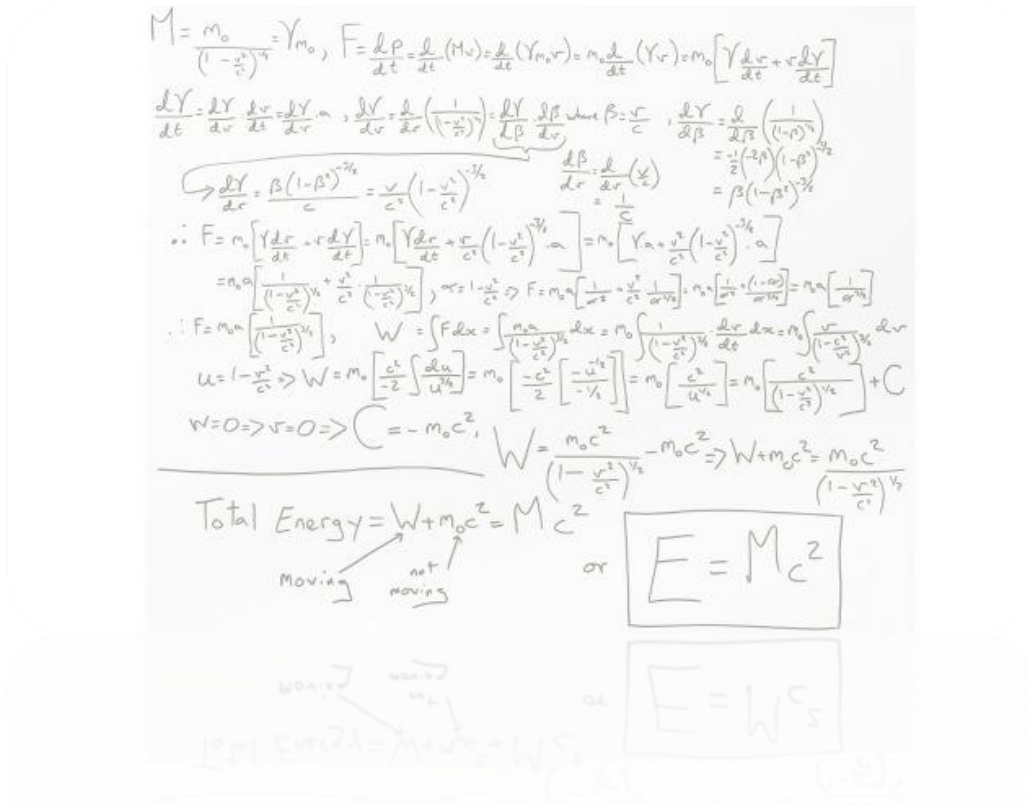 M = m₀/(1 - v²/c²)^½ = γm₀, F = dp/dt = d/dt(Mv) = d/dt(γm₀v) = m₀ d/dt(γv) = m₀[γ dv/dt + v dγ/dt]
dγ/dt = dγ/dv · dv/dt = dγ/dv · a, dγ/dv = d/dv(1/(1-v²/c²)^½) = dγ/dβ · dβ/dv where β = v/c, dγ/dβ = d/dβ(1/(1-β²)^½)
= -1/2(-2β)(1-β²)^-3/2
= β(1-β²)^-3/2
dβ/dv = d/dv(v/c)
= 1/c
→ dγ/dv = β(1-β²)^-3/2/c = v/c²(1-v²/c²)^-3/2
∴ F = m₀[γ dv/dt + v dγ/dt] = m₀[γ dv/dt + v²/c²(1-v²/c²)^-3/2 · a] = m₀[γa + v²/c²(1-v²/c²)^-3/2 · a]
= m₀a[1/(1-v²/c²)^½ + v²/c² · 1/(1-v²/c²)^3/2], α = 1-v²/c² => F = m₀a[1/α^½ + v²/c² · 1/α^3/2] = m₀a[1/α^½ + (1-α)/α^3/2] = m₀a[1/α^3/2]
∴ F = m₀a[1/(1-v²/c²)^3/2], W = ∫F dx = ∫ m₀a/(1-v²/c²)^3/2 dx = m₀∫ 1/(1-v²/c²)^3/2 · dv/dt dx = m₀∫ v/(1-c²/v²)^3/2 dv
u = 1-v²/c² => W = m₀[c²/-2 ∫ du/u^3/2] = m₀[-c²/2 [-u^-1/2/-1/2]] = m₀[c²/u^½] = m₀[c²/(1-v²/c²)^½] + C
W=0 => v=0 => C = -m₀c², W = m₀c²/(1-v²/c²)^½ - m₀c² => W+m₀c² = m₀c²/(1-v²/c²)^½
Total Energy = W+m₀c² = Mc²
moving not moving or E = Mc²